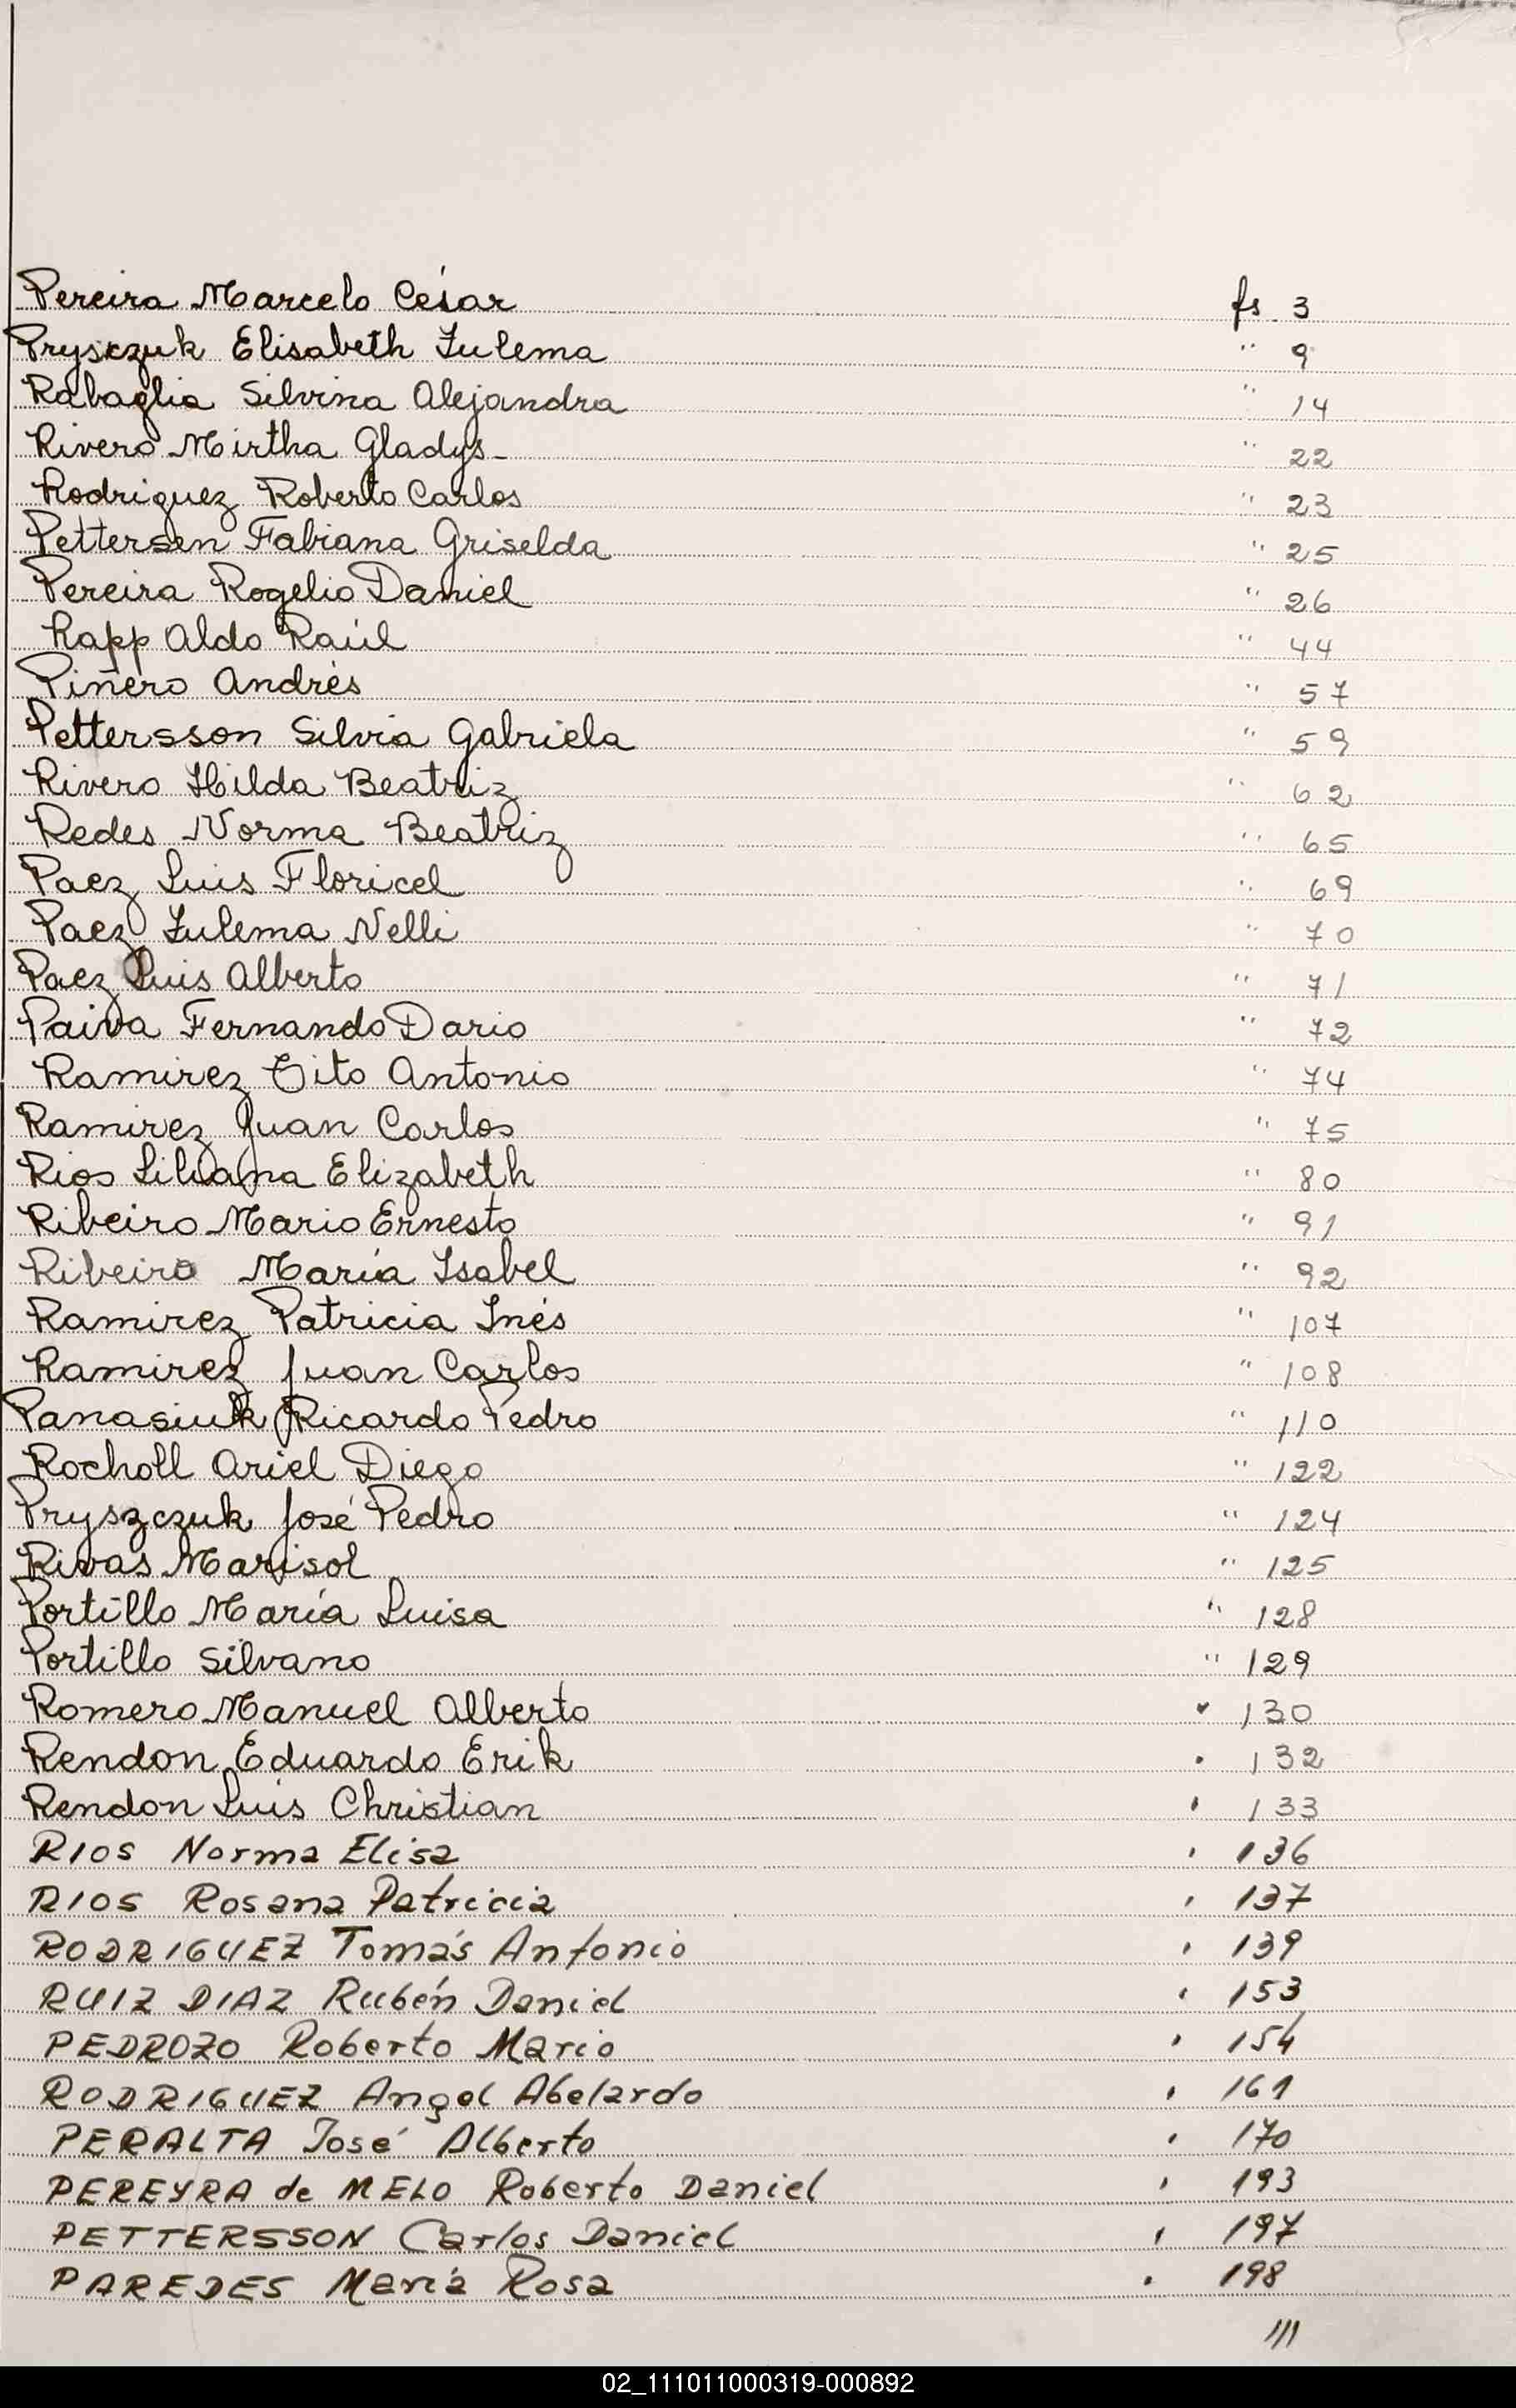 Pereira Marcelo César fs 3
Pryszczuk Elisabeth Zulema " 9
Rabaglia Silvina Alejandra " 14
Rivero Mirtha Gladys- " 22
Rodriguez Roberto Carlos " 23
Pettersen Fabiana Griselda " 25
Pereira Rogelio Daniel " 26
Rapp Aldo Raúl " 44
Piñero Andrés " 57
Pettersson Silvia Gabriela " 59
Rivero Hilda Beatriz " 62
Redes Norma Beatriz " 65
Paez Luis Floricel " 69
Paez Zulema Nelli " 70
Paez Luis Alberto " 71
Paiva Fernando Dario " 72
Ramirez Tito Antonio " 74
Ramirez Juan Carlos " 75
Rios Liliana Elizabeth " 80
Ribeiro Mario Ernesto " 91
Ribeiro María Isabel " 92
Ramirez Patricia Inés " 107
Ramirez Juan Carlos " 108
Panasiuk Ricardo Pedro " 110
Rocholl Ariel Diego " 122
Pryszczuk José Pedro " 124
Rivas Marisol " 125
Portillo María Luisa " 128
Portillo Silvano " 129
Romero Manuel Alberto " 130
Rendon Eduardo Erik " 132
Rendon Luis Christian ' 133
RIOS Norma Elisa ' 136
RIOS Rosana Patricia ' 137
RODRIGUEZ Tomás Antonio ' 139
RUIZ DIAZ Rubén Daniel ' 153
PEDROZO Roberto Mario ' 154
RODRIGUEZ Angel Abelardo ' 161
PERALTA José Alberto ' 170
PEREYRA de MELO Roberto Daniel ' 193
PETTERSSON Carlos Daniel ' 197
PAREDES María Rosa ' 198
///
02_111011000319-000892